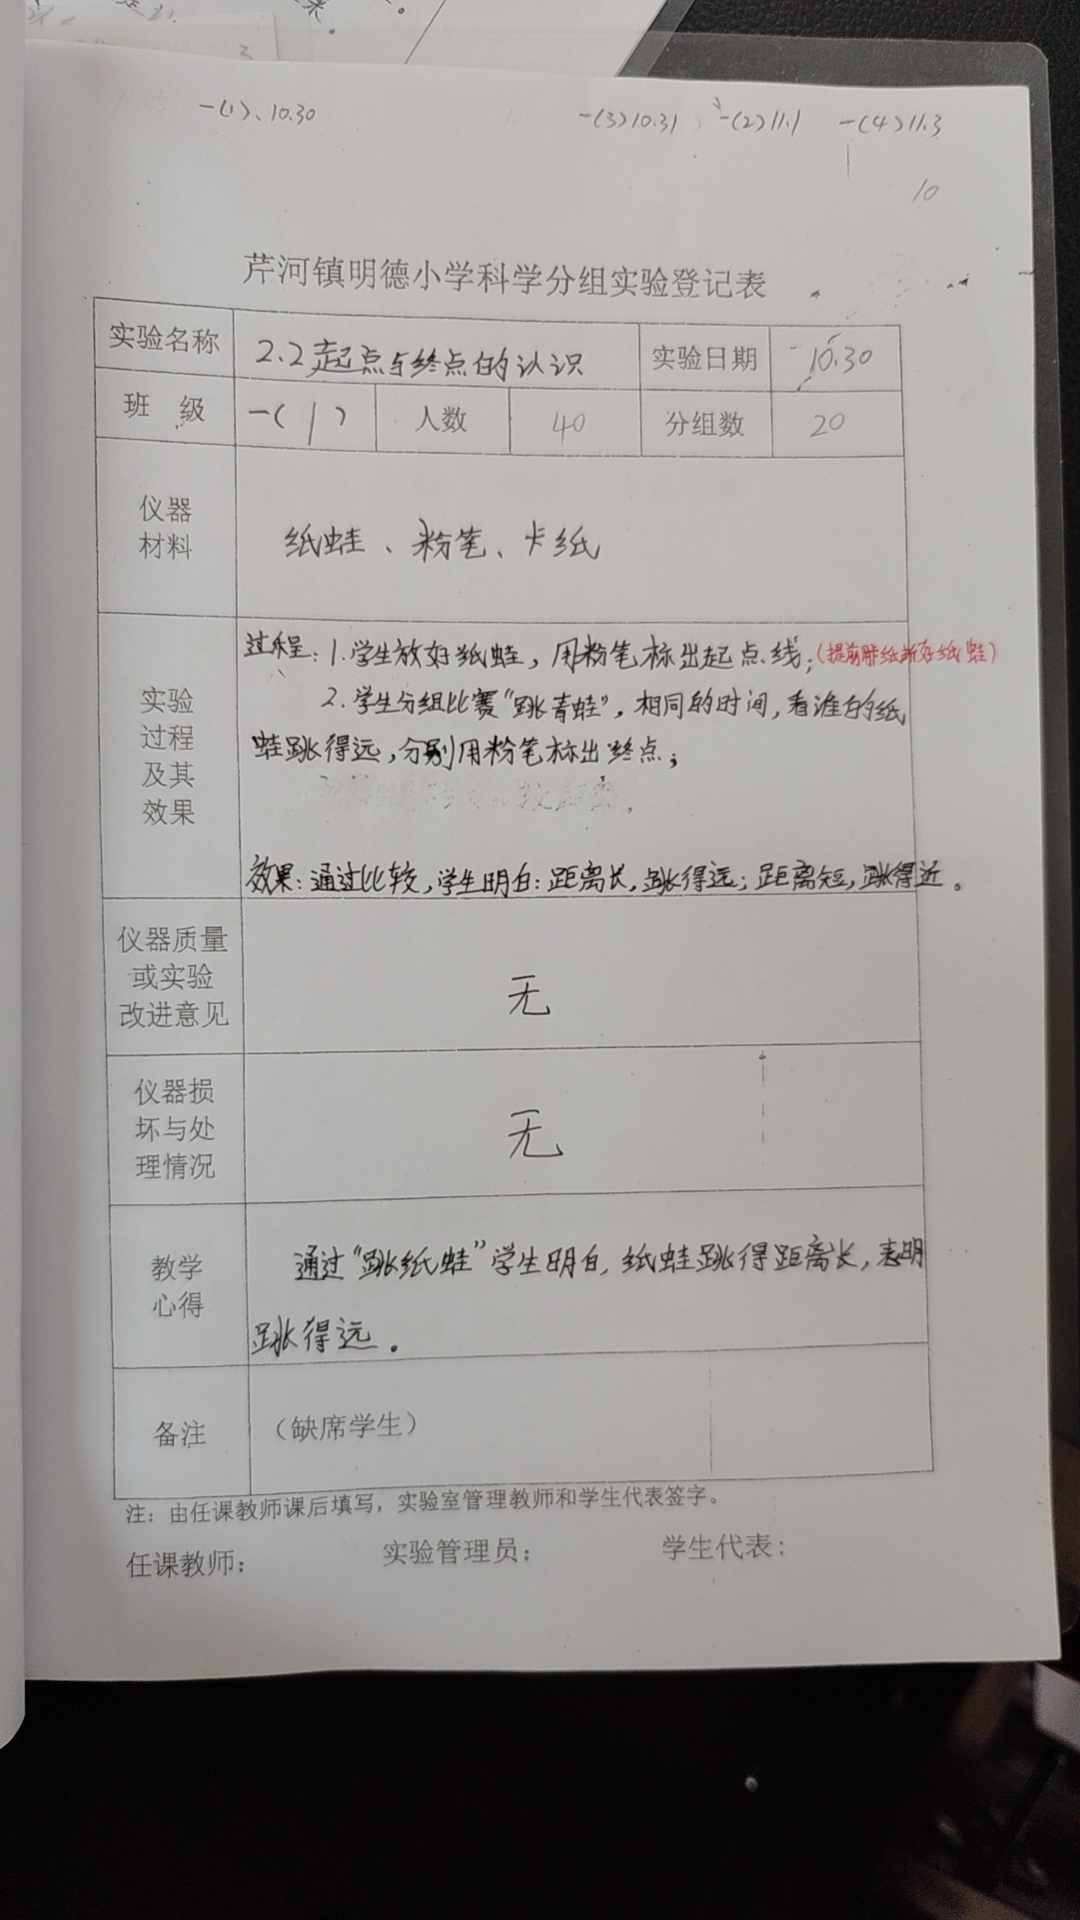 一(1)、10.30 一(3)10.31 一(2)11.1 一(4)11.3
10
芹河镇明德小学科学分组实验登记表
实验名称 2.2起点与终点的认识 实验日期 10.30
班 级 一(1) 人数 40 分组数 20
仪器
材料
纸蛙、粉笔、卡纸
实验
过程
及其
效果
过程:1.学生放好纸蛙,用粉笔标出起点线;(提前用纸折好纸蛙)
2.学生分组比赛“跳青蛙”,相同的时间,看谁的纸
蛙跳得远,分别用粉笔标出终点;
效果:通过比较,学生明白:距离长,跳得远;距离短,跳得近。
仪器质量
或实验
改进意见
无
仪器损
坏与处
理情况
无
教学
心得
通过“跳纸蛙”学生明白,纸蛙跳得距离长,表明
跳得远。
备注 (缺席学生)
注:由任课教师课后填写,实验室管理教师和学生代表签字。
任课教师: 实验管理员: 学生代表: